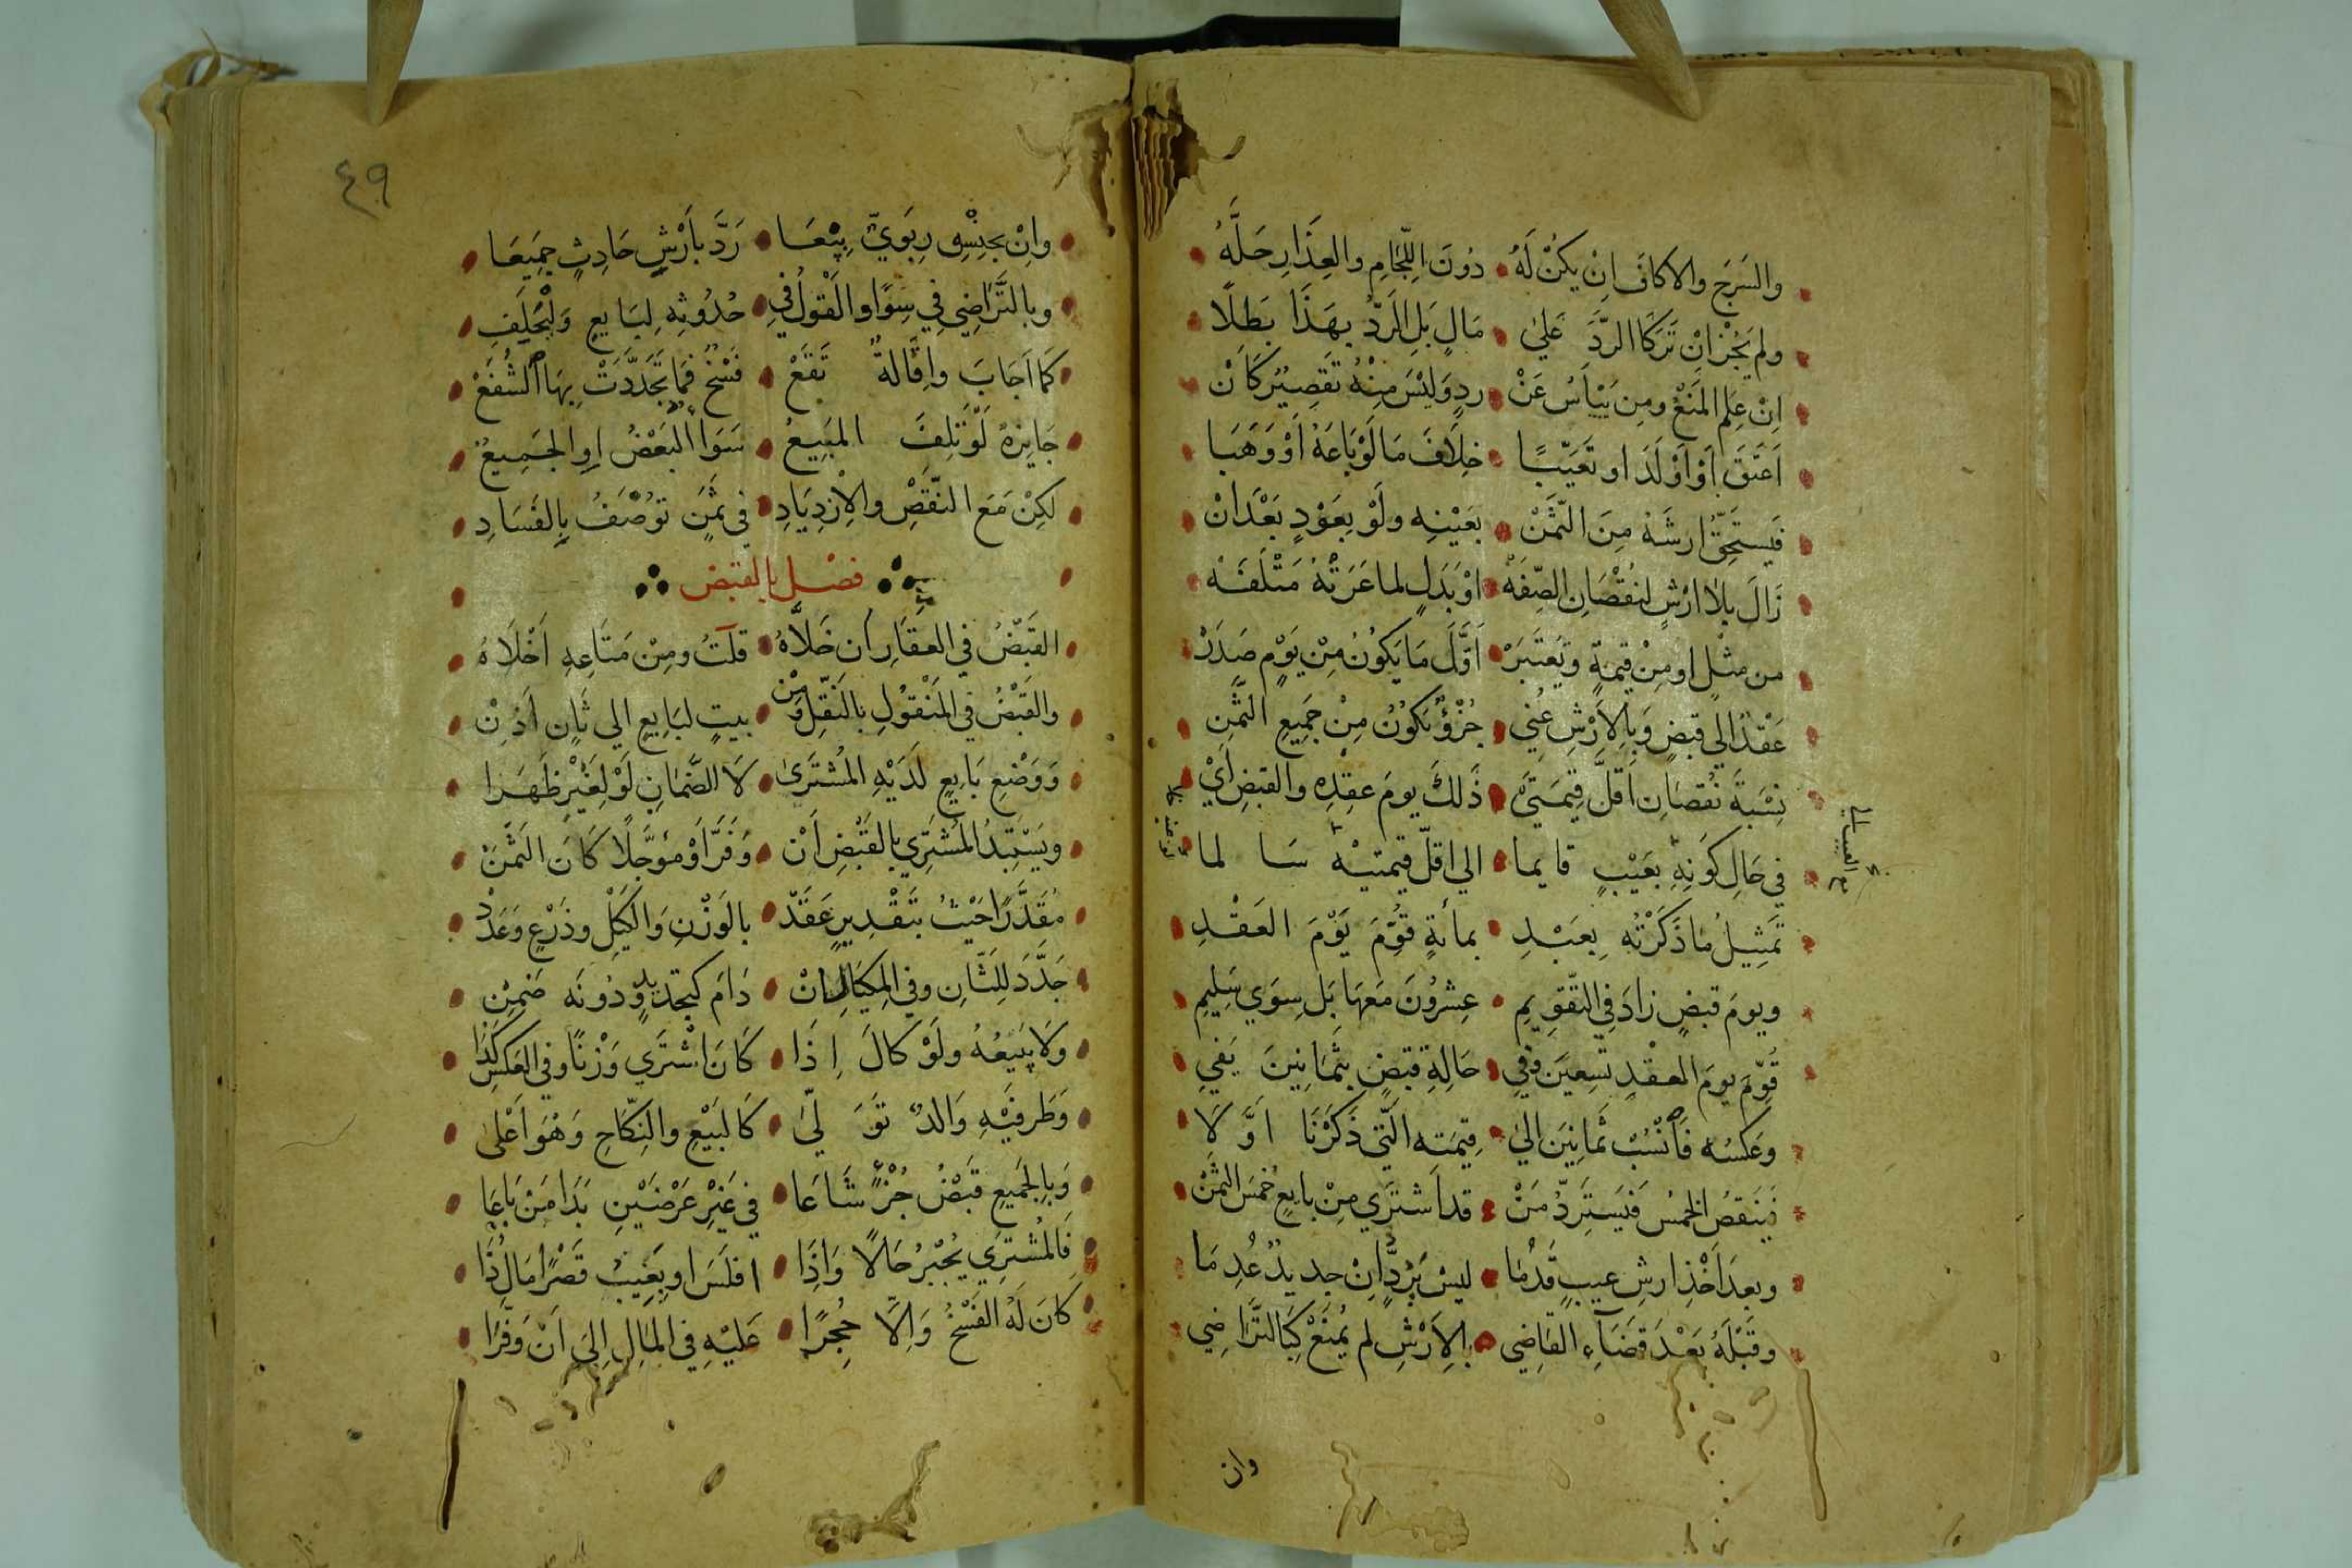 والسَرَجَ والاكافَ اِنْ يكنْ لَهُ • دُونَ اللِّجَامِ والعِذَارِ حَلَّهُ
ولم يَجُزْ اِنْ تَرَكَا الرَّدَّ عَلَىٰ • مَالٍ بَلِ الرَدُّ بِهَذَا بَطَلَا
اِنْ عَلِمَ المَنْعَ ومِن يَيْأسُ عَنْ • ردٍ وَلَيْسَ مِنْهُ تَقصِيْرٌ كَاَنْ
اَعتَقَ اَوْ اَوْلَدَ او تَعَيَّبًا • خِلَافَ مَا لَوْ بَاعَهُ اَوْ وَهَبَا
فَيَستَحِقُّ ارشَهُ مِنَ الثَّمَنْ • بعَيْنِهِ ولَوْ بِعَوْدٍ بَعْدَ اَنْ
زَالَ بِلَا ارْشٍ لنُقْصَانِ الصِّفَهْ • اوْ بَدَلٍ لما عَرَتْهُ مَتْلَفَهْ
من مثلٍ او مِنْ قيمةٍ ويَعتَبَرْ • اَوَّلَ مَا يَكُونُ مِنْ يَوْمٍ صَدَرْ
عَقْدٌ الي قبضٍ وَبِالاَرْشِ عُنِي • جُزْؤٌ يَكُونُ مِنْ جَمِيعِ الثَّمَنِ
نِسْبَةَ نُقصَانِ اَقلَّ قِيمَتَيْ • ذَلكَ يومَ عقدِه والقبضِ اَيْ
في حَالِ كَونِهِ بعَيْبٍ قايما • الي اقلّ قيمتيْه سَالما
تَمثِيلُ مَا ذَكَرْتُه بِعَبْدِ • بمائةٍ قُوِّمَ يَوْمَ العَقْدِ
ويومَ قبضٍ زادَ في التقّوِيمِ • عِشرُونَ مَعهَا بَل سِوَي سَلِيمِ
قُوِّمَ يومَ العقْدِ تسعِينَ وَفِي • حَالةِ قبضٍ بثَمانِينَ يَفي
وعَكسُه فَاَنْسُبْ ثَمانينَ الي • قِيمَتِه الَّتي ذَكَرْنَا اَوَّلَا
فيَنقصُ الخمسُ فَيَستَردُّ مَنْ • قد اَشتَرَي مِنْ بايعٍ خُمسَ الثمَنْ
وبعدَ اَخْذِ ارشِ عيبٍ قَدُمَا • ليسَ يَرُدُّ اِنْ جديدٌ عُدِمَا
وقَبْلَهُ بَعْدَ قضَآءِ القاضِي • بالاَرْشِ لم يُمنَعْ كَبِالتَّرَاضِي
وان
٤٩
وانْ بجنْسِهِ رِبَويٌّ بِيْعَا • رَدَّ بارْشٍ حَادِثٍ جَمِيعَا
وبالتَّرَاضِي فِي سِوًا والقَولُ فِي • حُدُوثِهِ لِبَايعٍ وَلْيَحْلِفِ
كما اَجَابَ واِقَالةٌ تَقَعْ • فَسْخٌ فَمَا تَجَدَّدَتْ بِهَا الشُّفَعْ
جَايزةٌ لَوْ تَلِفَ المبَيِعُ • سَوَاءٌ البَعْضُ اوِ الجَمِيعُ
لكِنْ مَعَ النَّقصِ والاِزدِيَادِ • في ثمَنٍ تُوْصَفُ بِالفَسَادِ
فصْل بالقبض
القَبْضُ في العَقَارِ ان خَلَّاهُ • قلتُ ومِنْ مَتَاعِهِ اَخْلَاهُ
والقَبْضُ في المَنْقوُلِ بالنَقلِ وَمِنْ • بيتٍ لبَايعٍ الي ثَانٍ اَذِنْ
وَوَضْعِ بَايعٍ لَدَيْهِ المُشتَرَىٰ • لَا الضَّمانِ لَوْ لِغَيْرٍ ظَهَرا
ويَسْتَبِدُّ المُشتَرِي بالقَبْضِ اَنْ • وَفَّرَ اَوْ مُؤجَّلًا كَانَ الثَمَنْ
مُقَدَّرًا حَيْثُ بتَقْدِيرٍ عَقَدْ • بالوَزْنِ وَالكَيْلِ وذَرْعٍ وَعَدَدْ
جَدَّدَ للثَّانِ وفي المِكيَالِ اِنْ • دَامَ كتجديدٍ ودُونَه ضَمِنْ
وَلَا يَبيعُهُ ولَوْ كالَ اِذَا • كَانَ اشتَرَي وَزْنًا وفي العَكسِ كَذَا
وَطَرفيْهِ وَالدٌ تَوَلَّىٰ • كَالبَيْعِ والنِكّاحِ وَهْوَ اَعْلىٰ
وَبِالجَميعِ قَبْضُ جُزْءٍ شَاعَا • في غَيْرِ عَرْضَيْنِ بَدَا مَنْ بَاعَا
فَالمُشتَرِي يُجْبَرُ حَالًا وَاذَا • افلَسَ او بَغِيْبُ قَصْرًا مَالُ ذَا
كَانَ لَهُ الفَسْخُ وَاِلَّا حُجِرًا • عَلَيْهِ في المَالِ اِلَى اَنْ وَفَّرَا